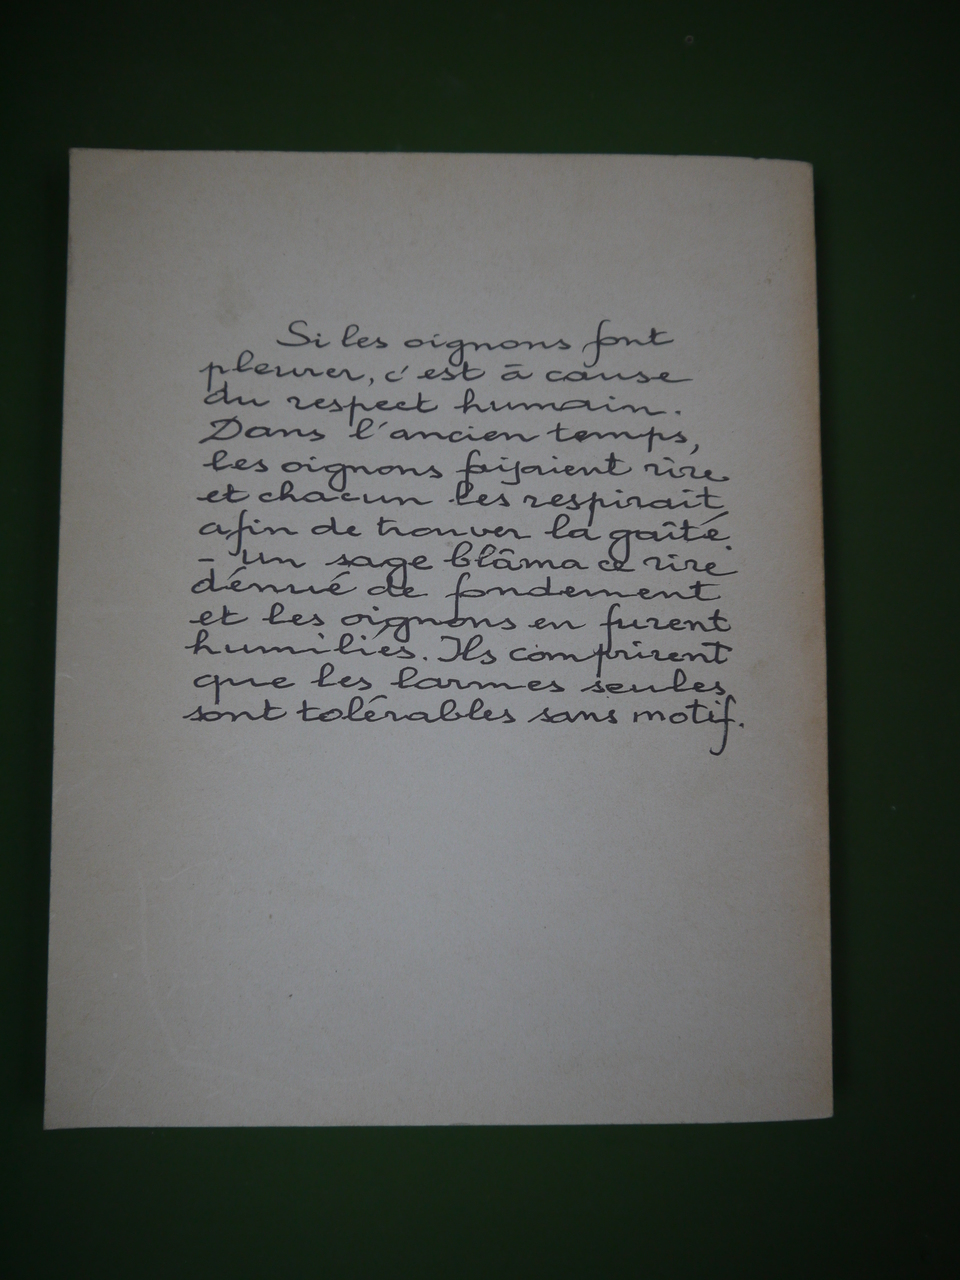 Si les oignons font
pleurer, c'est à cause
du respect humain.
Dans l'ancien temps,
les oignons faisaient rire
et chacun les respirait
afin de trouver la gaîté.
- Un sage blâma ce rire
dénué de fondement
et les oignons en furent
humiliés. Ils comprirent
que les larmes seules
sont tolérables sans motif.